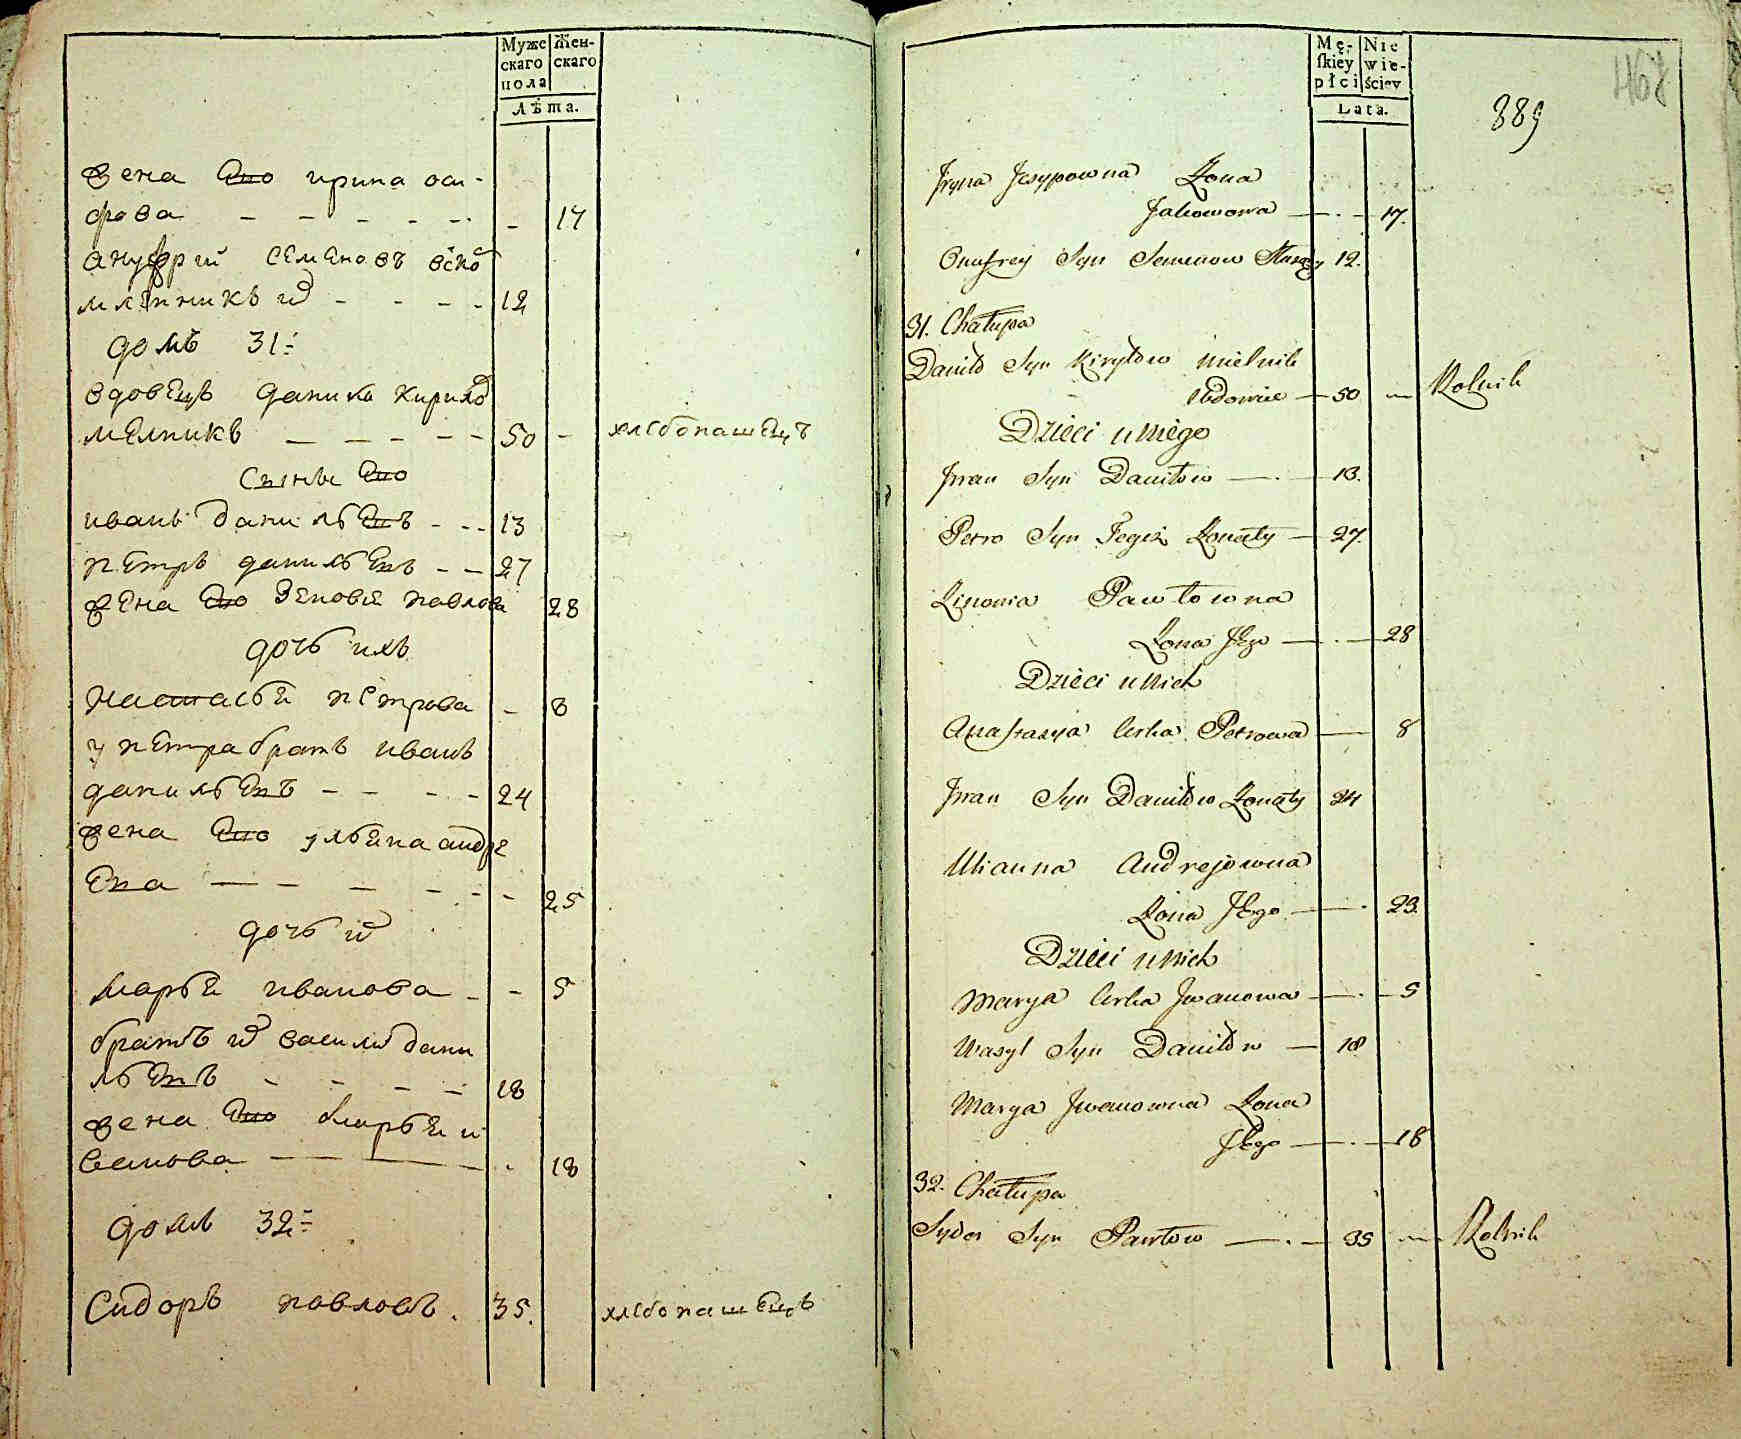 Муже
скаго
пола
Жен-
скаго
Лѣта.
жена Его ирина оси-
фова - - - - - - - 17
ануфрий семеновъ
- - - - 12
домъ 31:
вдовецъ данила кирилов
мелникъ - - - - - 50 - хлебопашецъ
сыны Его
иванъ данильевъ - - - 13
петръ данильевъ - - 27
жена Его Зеновея павлова 28
дочь ихъ
настасья петрова - 8
у петра братъ иванъ
данильевъ - - - - 24
жена Его ульяна андре
Евна - - - - - - 25
дочь
марья иванова - - 5
братъ василий дани
льевъ - - - - 18
жена Его марья и
ванова - - - . 18
домъ 32:
Сидоръ павловъ . 35. хлебопашецъ
Mę-
ſkiey
płci
Nie
wie-
ściey
Lata.
468
889
Jryna Josypowna Żona
Jakowowa — . - 17.
Onufrey Syn Semenow 12.
31. Chałupa
Daniło Syn Kiryłow Mielnik
Wdowiec — 50 — Rolnik
Dzieci u Niego
Jwan Syn Daniłow — . — 13.
Petro Syn Żonaty — 27.
Zinowia Pawłowna
Żona Jego — . — 28
Dzieci u Nich
Anastasya Corka Petrowa — 8
Jwan Syn Daniłow Żonaty 24
Ulianna Andrejowna
Żona Jego — . 23.
Dzieci u Nich
Marya Corka Jwanowa — . — 5
Wasyl Syn Daniłow — 18
Marya Jwanowna Żona
Jego — . — 18
32. Chałupa
Sydor Syn Pawłow — . — 35 — Rolnik